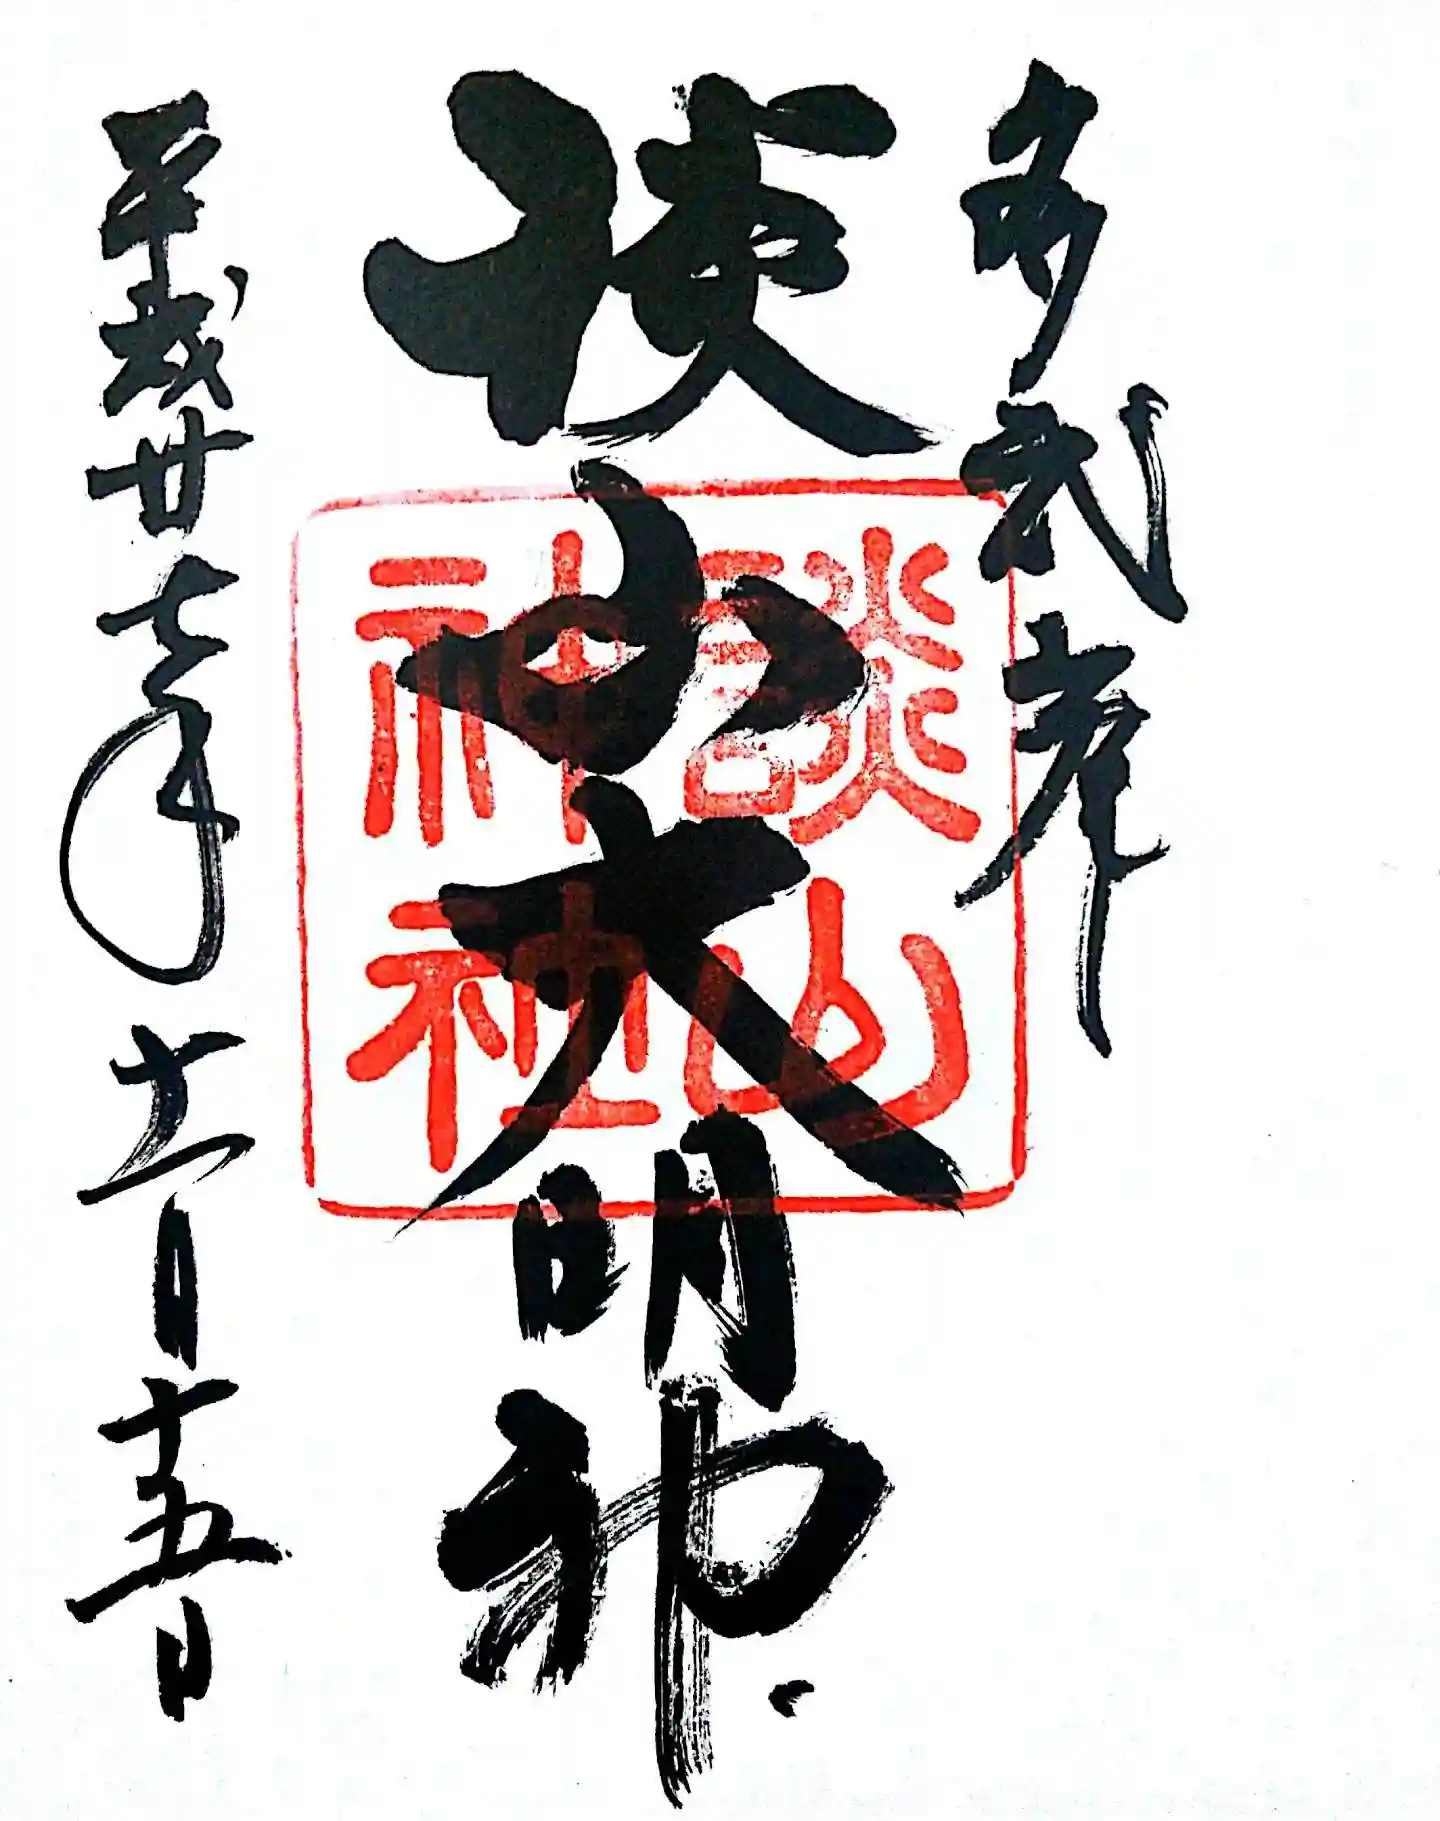 多武峯
談山大明神
談山
神社
平成廿七年十一月十五日